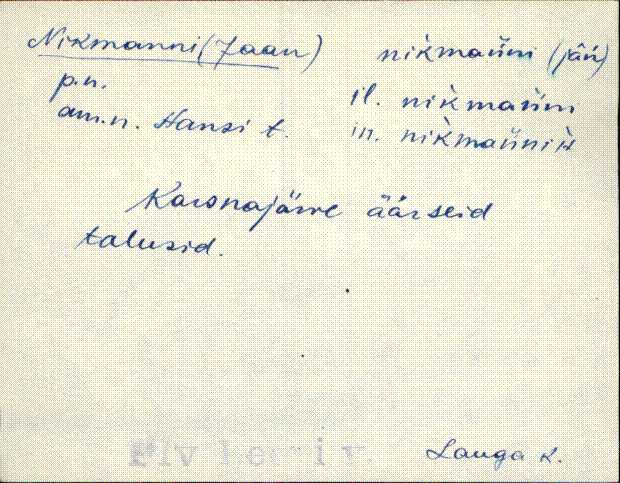 Nikmanni (Jaan) nìkmańni (jāń)
p.n. il. nìkmańni
am.n. Hansi t. in. nìkmańnih
Karsnajärve äärseid
talusid.
Lauga k.